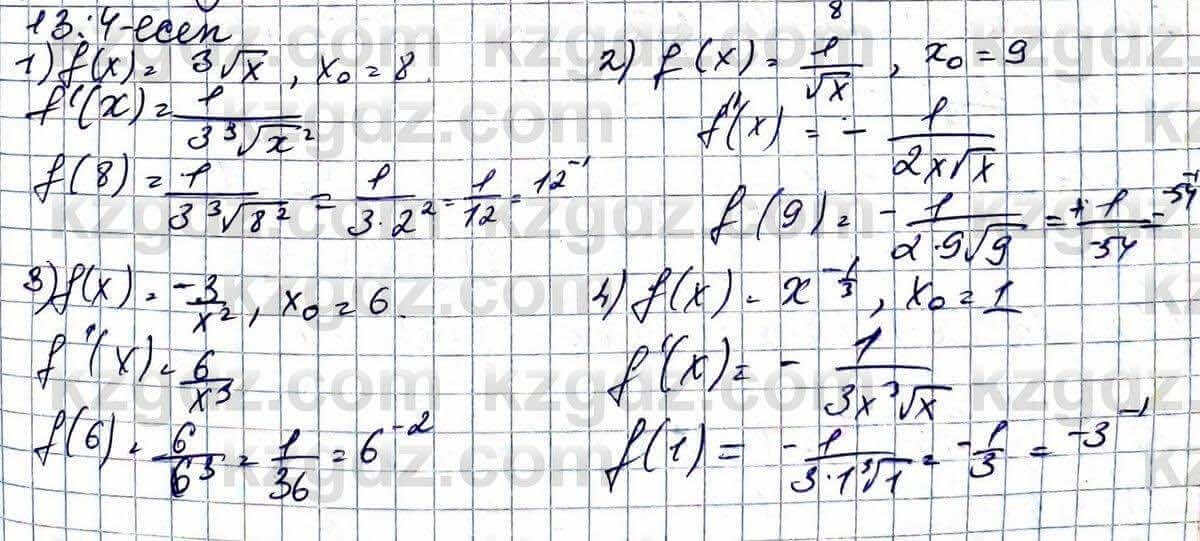 13.4-есеп
8
1) f(x) = ³√x, x₀ = 8.
f'(x) = 1/(3 ³√x²)
f(8) = 1/(3 ³√8²) = 1/(3·2²) = 1/12 = 12⁻¹
2) f(x) = 1/√x, x₀ = 9
f'(x) = - 1/(2x√x)
f(9) = - 1/(2·9√9) = + 1/-54 = -54⁻¹
3) f(x) = -3/x², x₀ = 6.
f'(x) = 6/x³
f(6) = 6/6³ = 1/36 = 6⁻²
4) f(x) = x^(-1/3), x₀ = 1
f'(x) = - 1/(3x ³√x)
f(1) = - 1/(3·1 ³√1) = - 1/3 = -3⁻¹
kzgdz.com